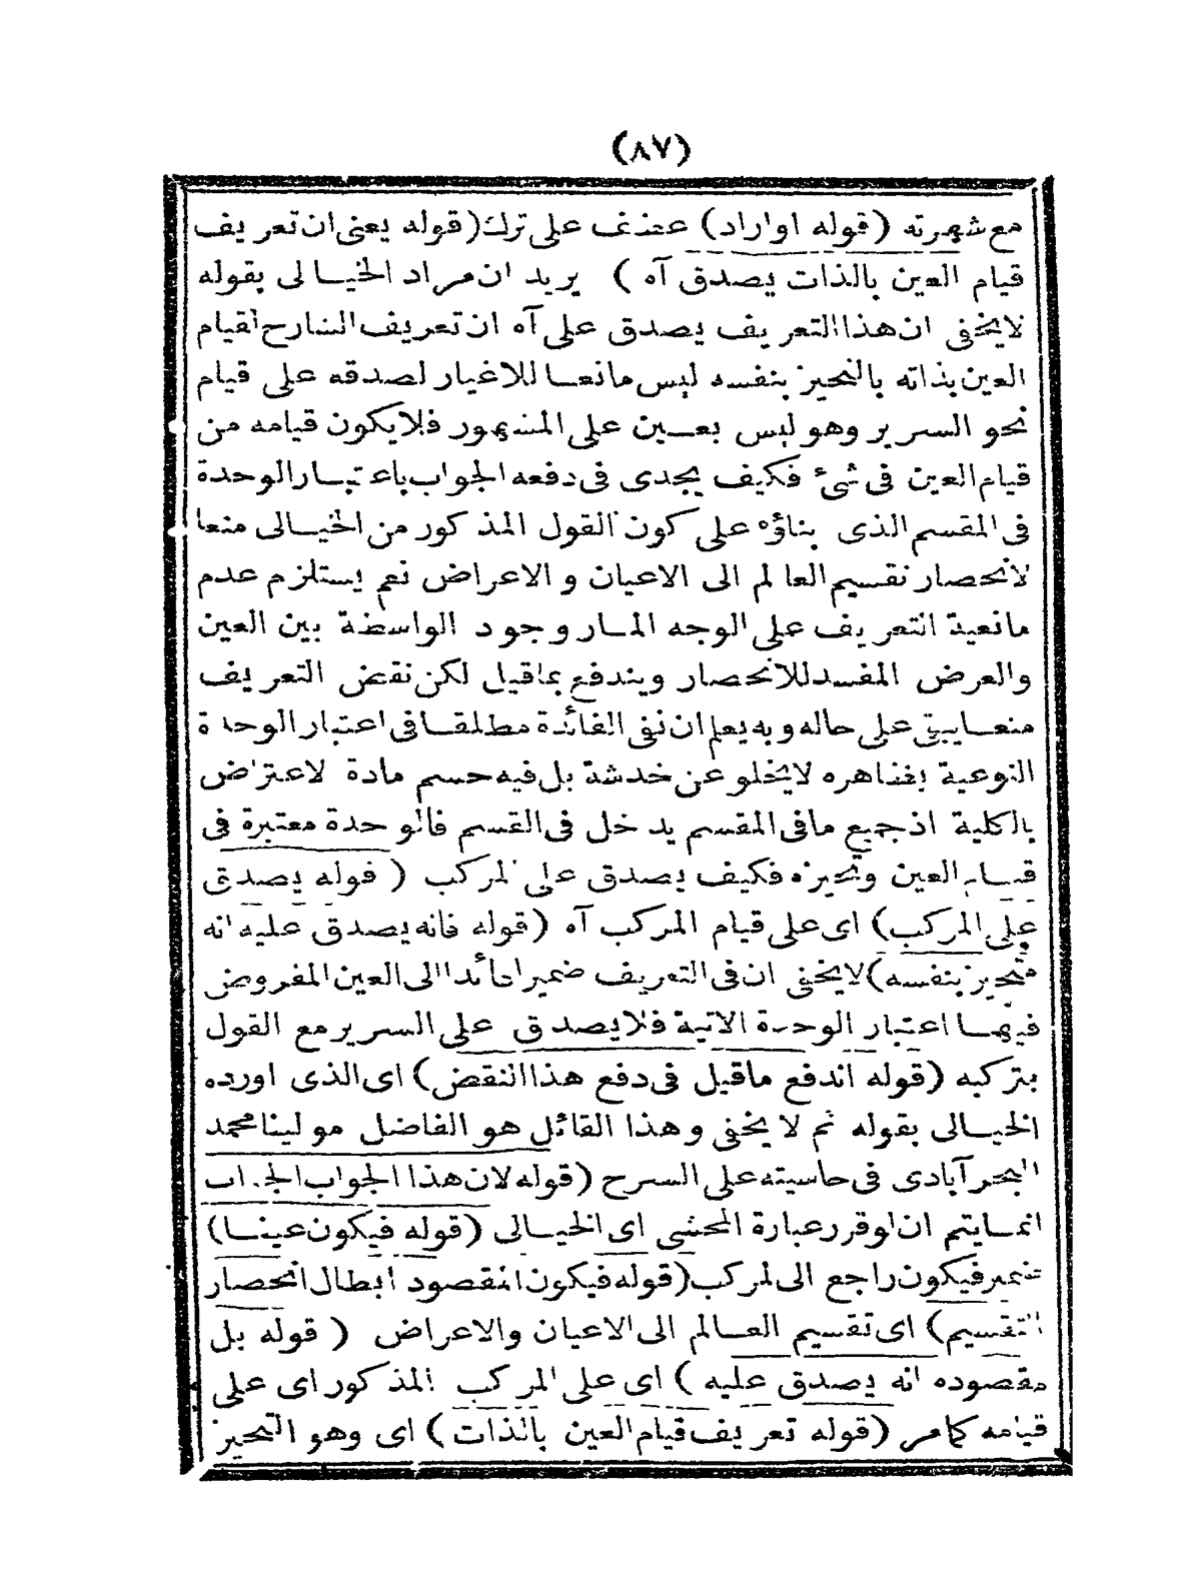 (٨٧)
مع شهرته (قوله او اراد) عطف على ترك (قوله يعنى ان تعريف
قيام العين بالذات يصدق آه) يريد ان مراد الخيالى بقوله
لا يخفى ان هذا التعريف يصدق على آه ان تعريف الشارح لقيام
العين بذاته بالتحيز بنفسه ليس مانعا للاغيار لصدقه على قيام
نحو السرير وهو ليس بعين على المشهور فلا يكون قيامه من
قيام العين فى شئ فكيف يجدى فى دفعه الجواب باعتبار الوحدة
فى المقسم الذى بناؤه على كون القول المذكور من الخيالى منعا
لانحصار تقسيم العالم الى الاعيان والاعراض نعم يستلزم عدم
مانعية التعريف على الوجه المار وجود الواسطة بين العين
والعرض المفسد للانحصار ويندفع بما قيل لكن نقض التعريف
منعا يبقى على حاله وبه يعلم ان نفى الفائدة مطلقا فى اعتبار الوحدة
النوعية بظاهره لا يخلو عن خدشة بل فيه حسم مادة الاعتراض
بالكلية اذ جميع ما فى المقسم يدخل فى القسم فالوحدة معتبرة فى
قيام العين وتحيزه فكيف يصدق على المركب (قوله يصدق
على المركب) اى على قيام المركب آه (قوله فانه يصدق عليه انه
متحيز بنفسه) لا يخفى ان فى التعريف ضميرا عائدا الى العين المفروض
فيها اعتبار الوحدة الاتية فلا يصدق على السرير مع القول
بتركبه (قوله اندفع ما قيل فى دفع هذا النقض) اى الذى اورده
الخيالى بقوله ثم لا يخفى وهذا القائل هو الفاضل مولينا محمد
البحر آبادى فى حاشيته على الشرح (قوله لان هذا الجواب الجواب
انما يتم ان لو قرر عبارة المحشى اى الخيالى (قوله فيكون عينا)
ضمير فيكون راجع الى المركب (قوله فيكون المقصود ابطال انحصار
التقسيم) اى تقسيم العالم الى الاعيان والاعراض (قوله بل
مقصوده انه يصدق عليه) اى على المركب المذكور اى على
قيامه كما مر (قوله تعريف قيام العين بالذات) اى وهو التحيز